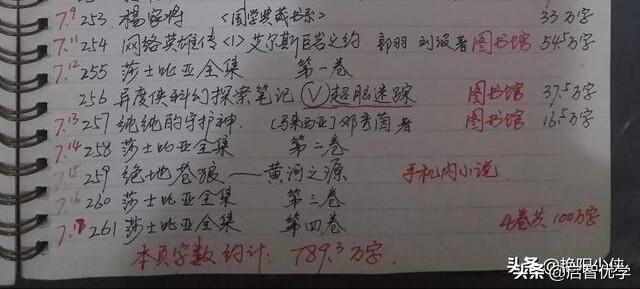 7.9 253. 杨家将 《国学典藏书系》 33万字
7.11 254 网络英雄传<1>艾尔斯巨岩之约 郭羽 刘波著 图书馆 54.5万字
7.12 255 莎士比亚全集 第一卷
256 异度侠科幻探案笔记 Ⅴ超脑迷踪 图书馆 37.5万字
7.13 257 纯纯的守护神. [马来西亚]邓秀茵著 图书馆 16.5万字
7.14 258 莎士比亚全集 第二卷
7.15 259 绝地苍狼——黄河之源 手机内小说.
7.16 260 莎士比亚全集 第三卷
7.18 261 莎士比亚全集 第四卷 4卷共100万字
本页字数约计: 789.3万字.
头条@艳阳小侠
头条@启智优学